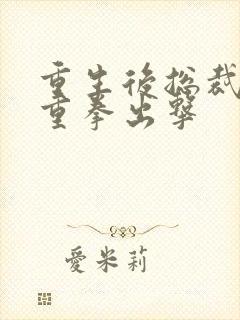 重生後總裁
重拳出擊
愛米莉